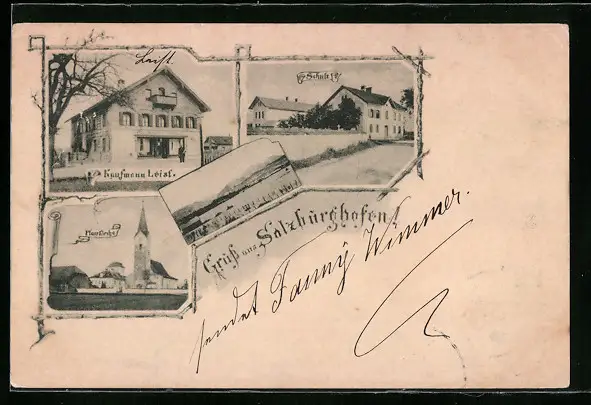 Leist.
Schule
Kaufmann Leist.
Pfarrkirche
Gruß aus Salzburghofen!
sendet Fanny Wimmer.